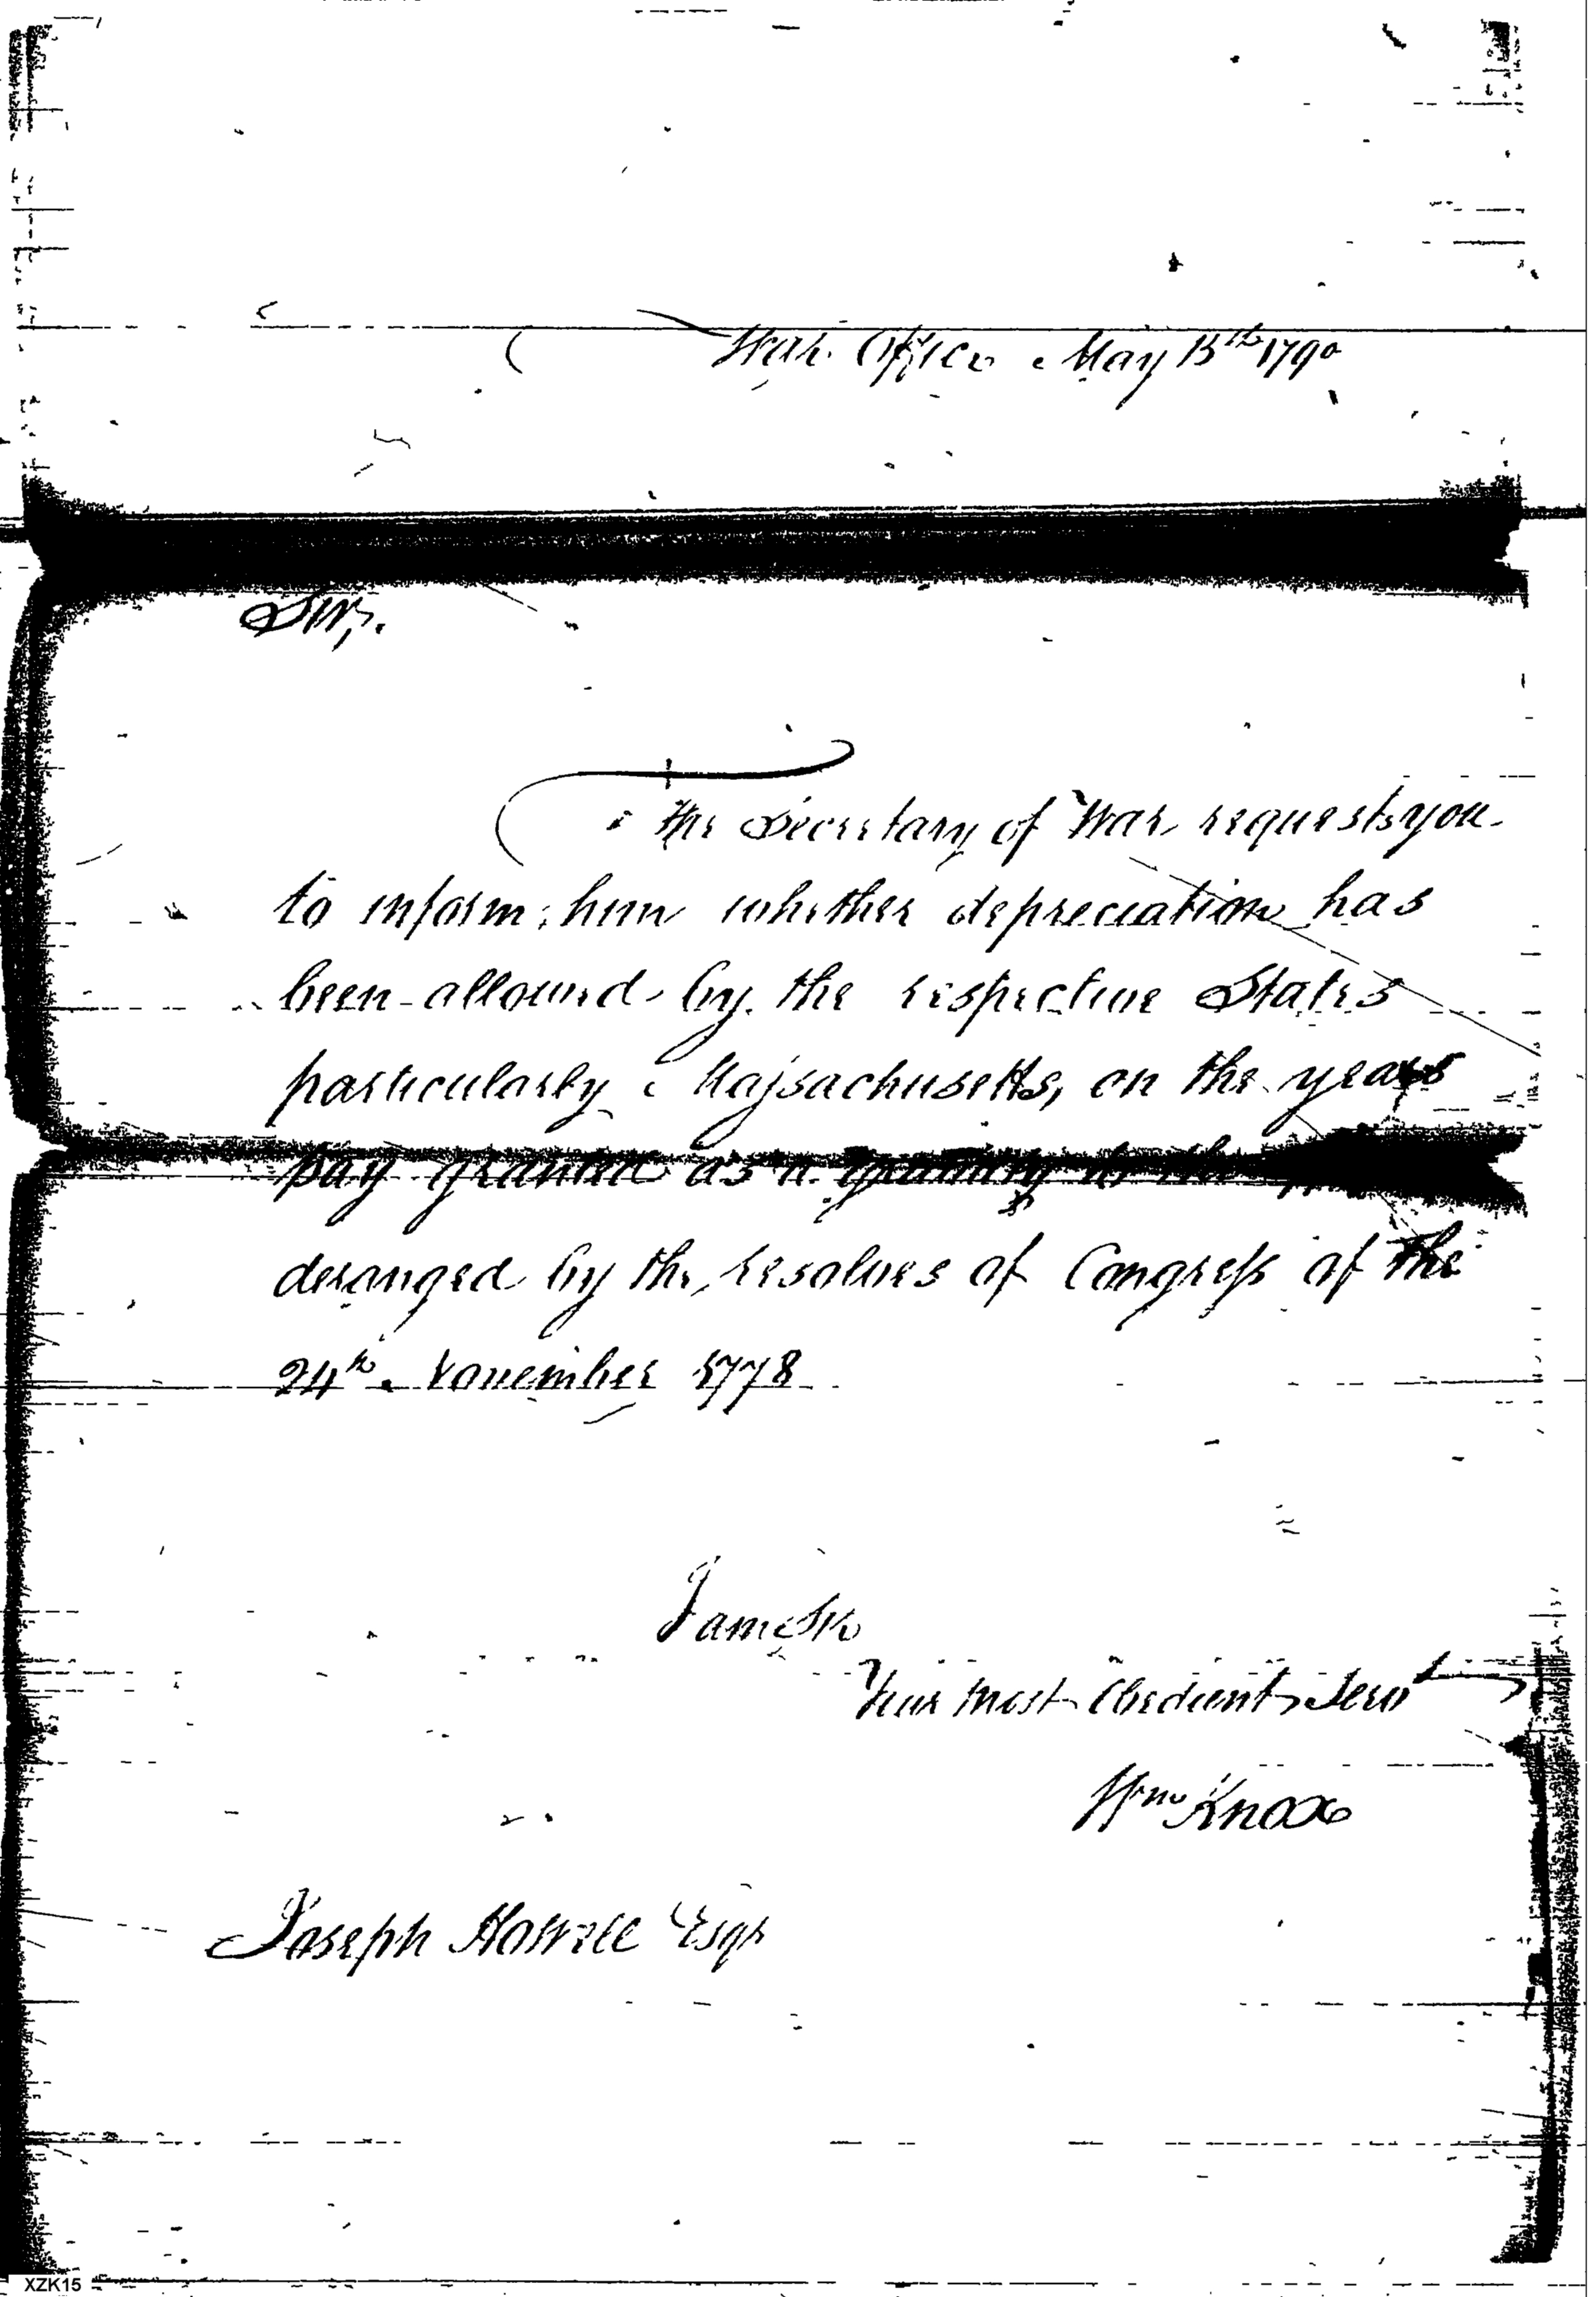 War Office May 15th 1790
Sir,
The Secretary of War requests you
to inform him whether depreciation has
been allowed by the respective States
particularly Massachusetts, on the years
pay granted as a gratuity to the
deranged by the resolves of Congress of the
24th November 1778
I am Sir
Your Most Obedient Servt
Wm Knox
Joseph Howell Esqr
XZK15